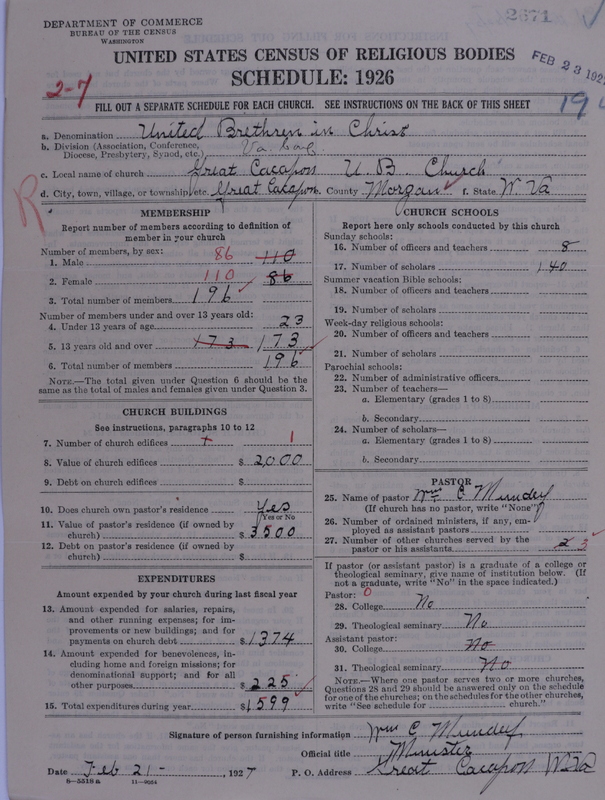 DEPARTMENT OF COMMERCE
BUREAU OF THE CENSUS
WASHINGTON
2671
UNITED STATES CENSUS OF RELIGIOUS BODIES
FEB 23 192
SCHEDULE: 1926
2-7
FILL OUT A SEPARATE SCHEDULE FOR EACH CHURCH. SEE INSTRUCTIONS ON THE BACK OF THIS SHEET
a. Denomination United Brethren in Christ
b. Division (Association, Conference, Diocese, Presbytery, Synod, etc.) Va.
c. Local name of church Great Cacapon U B Church
d. City, town, village, or township, etc. Great Cacapon e. County Morgan f. State W. Va
R
MEMBERSHIP
Report number of members according to definition of
member in your church
Number of members, by sex:
1. Male 86 110
2. Female 110 86
3. Total number of members 196
Number of members under and over 13 years old:
4. Under 13 years of age 23
5. 13 years old and over 173 173
6. Total number of members 196
NOTE.—The total given under Question 6 should be the
same as the total of males and females given under Question 3.
CHURCH BUILDINGS
See instructions, paragraphs 10 to 12
7. Number of church edifices 1
8. Value of church edifices $ 2000
9. Debt on church edifices $
10. Does church own pastor's residence Yes
(Yes or No)
11. Value of pastor's residence (if owned by
church) $ 3500
12. Debt on pastor's residence (if owned by
church) $
EXPENDITURES
Amount expended by your church during last fiscal year
13. Amount expended for salaries, repairs,
and other running expenses; for im-
provements or new buildings; and for
payments on church debt $ 1374
14. Amount expended for benevolences, in-
cluding home and foreign missions; for
denominational support; and for all
other purposes $ 225
15. Total expenditures during year $ 1599
CHURCH SCHOOLS
Report here only schools conducted by this church
Sunday schools:
16. Number of officers and teachers 8
17. Number of scholars 140
Summer vacation Bible schools:
18. Number of officers and teachers
19. Number of scholars
Week-day religious schools:
20. Number of officers and teachers
21. Number of scholars
Parochial schools:
22. Number of administrative officers
23. Number of teachers—
a. Elementary (grades 1 to 8)
b. Secondary
24. Number of scholars—
a. Elementary (grades 1 to 8)
b. Secondary
PASTOR
25. Name of pastor Wm C. Mundey
(If church has no pastor, write "None")
26. Number of ordained ministers, if any, em-
ployed as assistant pastors
27. Number of other churches served by the
pastor or his assistants 2 3
If pastor (or assistant pastor) is a graduate of a college or
theological seminary, give name of institution below. (If
not a graduate, write "No" in the space indicated.)
Pastor: 0
28. College No
29. Theological seminary No
Assistant pastor:
30. College No
31. Theological seminary No
NOTE.—Where one pastor serves two or more churches,
Questions 28 and 29 should be answered only on the schedule
for one of the churches; on the schedules for the other churches,
write "See schedule for church."
Signature of person furnishing information Wm C Mundey
Official title Minister
Date Feb 21 -, 1927 P. O. Address Great Cacapon W. Va
8-5518 a 11-9064